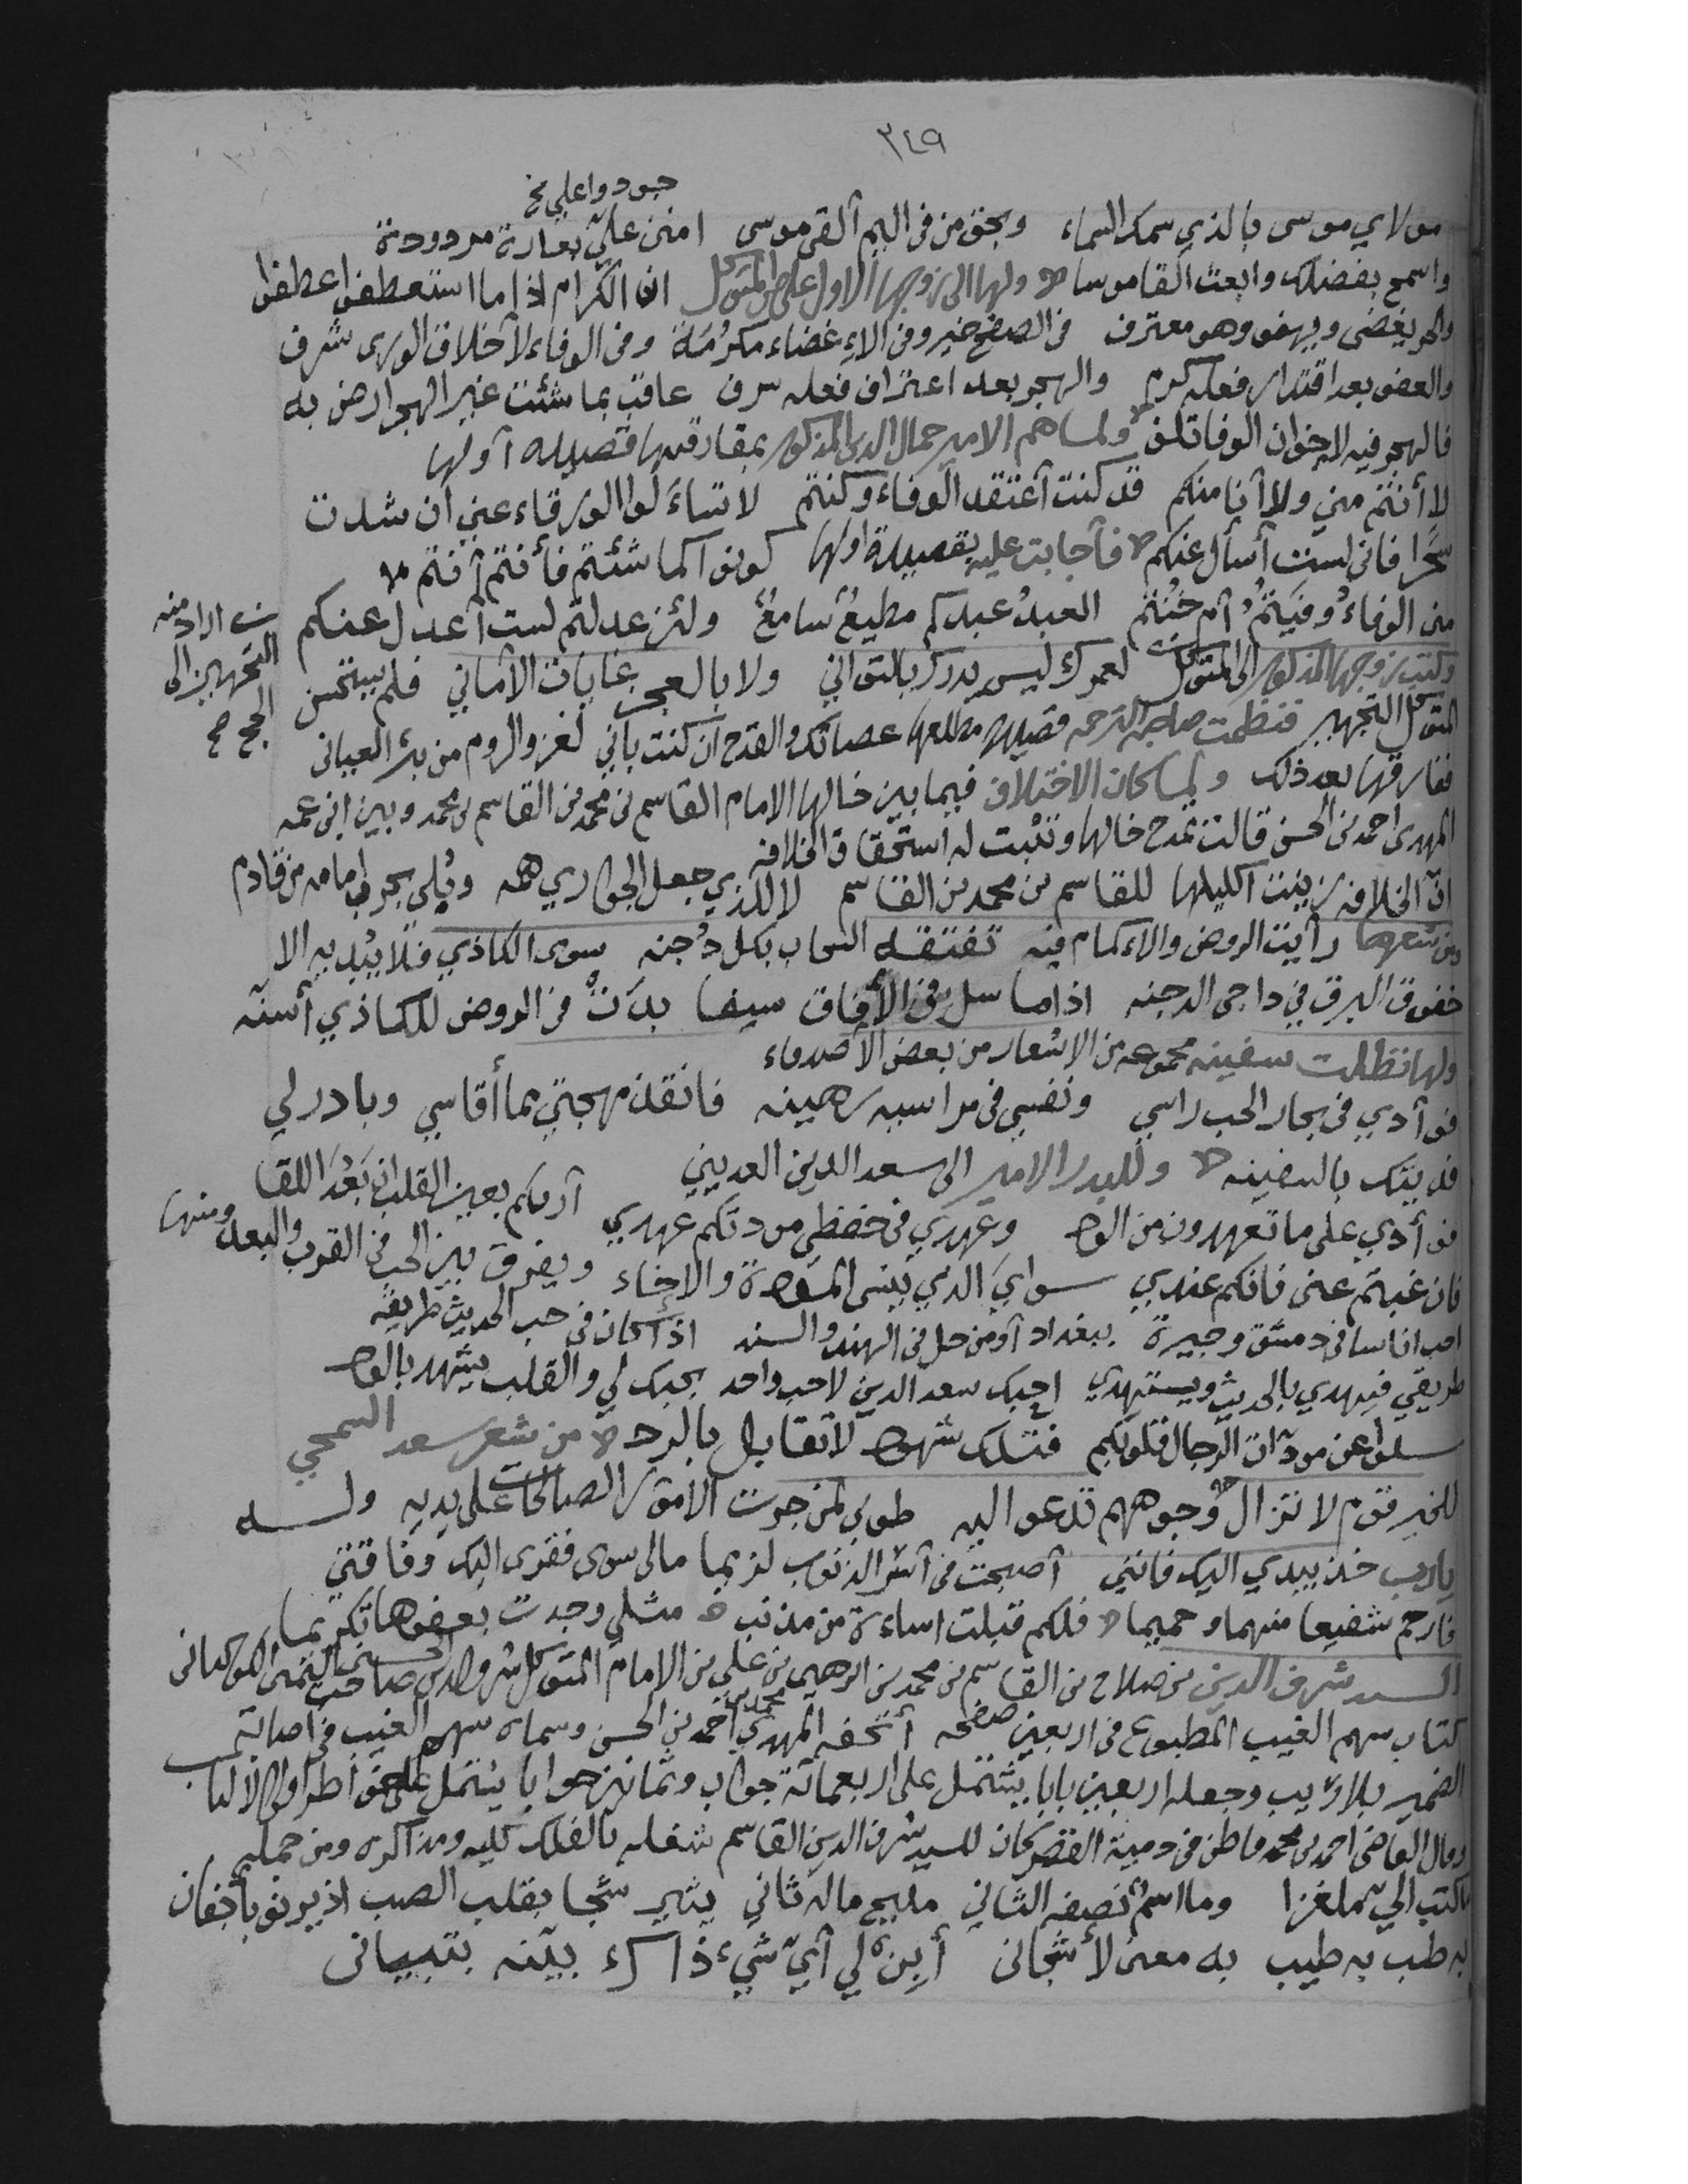 ٣٤٩
جودوا علي نخ
مولاي موسى بالذي سمك السماء وبحق من في اليم القى موسى امنن علي بعارة مردودة
واسمح بفضلك وابعث القاموسا ولها الى زوجها الاول علي بن المتوكل ان الكرام اذا ما استعطفوا عطفوا
والحر يغضى ويهفو وهو معترف في الصفح خير وفي الاغضاء مكرُمَة وفي الوفاء لاخلاق الورى شرف
والعفو بعد اقتدار فعله كرم والهجر بعد اعتراف فعله سرف عاقب بما شئت غير الهجر ارض به
فالهجر فيه لاخوان الوفا تلف ولما هم الامير جمال الدين المذكور بمفارقتها قصيدة أولها
لا أنتم مني ولا أنا منكم قد كنت أعتقد الوفاء وكنتم لا تساءلوا الورقاء عني ان شدت
سَحَرا فاني لست أسأل عنكم فأجابت عليه بقصيدة اولها كونوا كما شئتم فأنتم أنتم
من الوفاءُ وفيَتُم أم خُنتم العبدُ عبدكم مطيعٌ سامعٌ ولئن عدلتم لست أعدل عنكم
اراد منه التجهيز الى الحج صح
وكتب زوجها المذكور الى المتوكل لعمرك ليس يدرك بالتواني ولا بالعجز غايات الأماني فلم يستحسن
المتوكل التجهيز فنظمت صاحبة الترجمه قصيدة مطلعها عصاتك والقدح ان كنت باني لغز والروم من بئر العياني
ففارقها بعد ذلك ولما كان الاختلاف فيما بين خالها الامام القاسم بن محمد بن القاسم بن محمد وبين ابن عمه
المهدي احمد بن الحسن قالت تمدح خالها وتثبت له استحقاق الخلافه
انّ الخلافه زينت اكليلها للقاسم بن محمد بن القاسم لا للذي جعل الجواري همه وبُلي بجر امامه من قادم
ومن شعرها رأيت الروض والاكمام فيه تفتقه السحاب بكل دُجنه سوى الكاذي فلا يبديه الا
خفوق البرق في داجى الدجنه اذا ما سل في الأفاق سيفا بدَتْ في الروض للكاذي أسنّه
ولها تطلب سفينه مجموعه من الاشعار من بعض الاصدقاء
فوآدي في بحار الحب راسي ونفسي في مراسيه رهينه فانقذ مهجتي مما أقاسي وبادر لي
فديتك بالسفينه وللبدر الامير الى سعد الدين العديني
فوأدي على ما تعهدون من الود وعهدي في حفظي مودتكم عهدي أراكم بعين القلب ان بَعُدَ اللقا
فان غبتم عنى فانكم عندي سواي الذي ينسى المودة والاخاء ويفرق بين الحب في القرب والبعد ومنها
احب اناسا في دمشق وجيرة ببغداد أو من حل في الهند والسند اذا كان في حب الحديث طريقه
طريقي فيهدي بالحديث ويستهدي احبك سعد الدين لا حب واحد بحبك لي والقلب يشهد بالود
سلوا عن مودات الرجال قلوبكم فتلك شهود لا تقابل بالرد من شعر سعد السمحي
للخير قوم لا تزال وجوههم تدعو اليه طوبى لمن جرت الامور الصالحات على يديه وله
يارب خذ بيدي اليك فانني أصبحت في أسر الذنوب لزيما مالى سوى فقرى اليك وفاقتي
فارحم شفيعا منهما وحميما فلكم قبلت اساءة من مذنب مثلي وجدت بعفوها تكريما
السيد شرف الدين بن صلاح بن القاسم بن محمد بن ابرهيم بن علي بن الامام المتوكل شرف الدين صاحب الكوكباني
كتاب سهم الغيب المطبوع في اربعين صفحه أتحفه المهدي محمد بن أحمد بن الحسن وسماه سهم الغيب في اصابة
الضمير بلا ريب وجعله اربعين بابا يشتمل على اربعمائة جواب وثمانين جوابا يشتمل على
وقال القاضي احمد بن محمد قاطن في دمية القصر كان للسيد شرف الدين القاسم شغله بالفلك كليه ومذاكره ومن جملة
ما كتب الي ملغزا وما اسم نصفه الثاني مليح ماله ثاني يثير شجا بقلب الصب اذ يرنو بأجفان
به طب به طيب به معنى لأشجاني أبِنْ لي أيّ شيء ذا بيّنه بتبياني